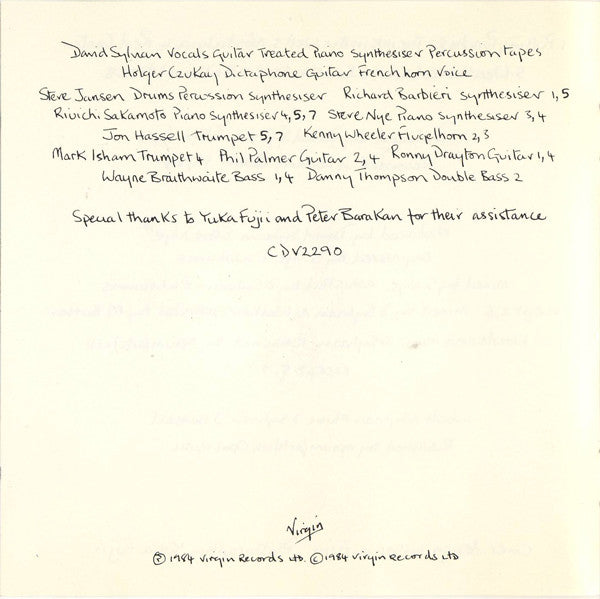 David Sylvian Vocals Guitar Treated Piano Synthesiser Percussion tapes
Holger Czukay Dictaphone Guitar French horn Voice
Steve Jansen Drums Percussion Synthesiser Richard Barbieri Synthesiser 1,5
Riuichi Sakamoto Piano Synthesiser 4,5,7 Steve Nye Piano Synthesiser 3,4
Jon Hassell Trumpet 5,7 Kenny Wheeler Flugelhorn 2,3
Mark Isham Trumpet 4 Phil Palmer Guitar 2,4 Ronny Drayton Guitar 1,4
Wayne Braithwaite Bass 1,4 Danny Thompson Double Bass 2
Special thanks to Yuka Fujii and Peter Barakan for their assistance
CDV2290
Virgin
℗ 1984 Virgin Records Ltd. © 1984 Virgin Records Ltd